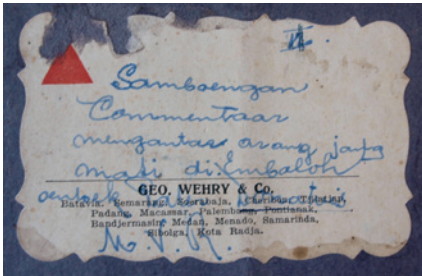 II.
Samboengan
Commentaar
mengantar orang jang
mati di Embaloh
oentoek
GEO. WEHRY & Co.
Batavia, Semarang, Soerabaja, Cheribon, Tjilatjap,
Padang, Macassar, Palembang, Pontianak,
Bandjermasin, Medan, Menado, Samarinda,
Sibolga, Kota Radja.